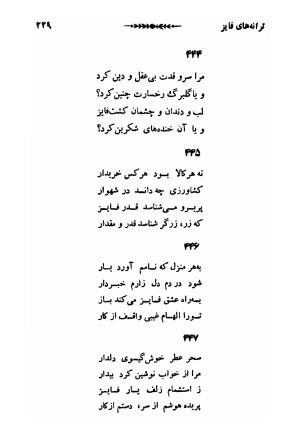 ترانه‌های فایز
۲۲۹
۴۴۴
مرا سرو قدت بی‌عقل و دین کرد
و یاگلبرگ رخسارت چنین‌کرد؟
لب و دندان و چشمان کشت‌فایز
و یا آن خنده‌های شکرین‌کرد؟
۴۴۵
نه هرکالا بود هرکس خریدار
کشاورزی چه داند در شهوار
پریرو می‌شناسد قدر فایز
که زر، زرگر شناسد قدر و مقدار
۴۴۶
به‌هر منزل که نامم آورد یار
شود در دم دل زارم خبردار
به‌راه عشق فایز می‌کند باز
تورا الهام غیبی واقف از کار
۴۴۷
سحر عطر خوش‌گیسوی دلدار
مرا از خواب نوشین کرد بیدار
ز استشمام زلف یار فایز
پریده هوشم از سر، دستم ازکار